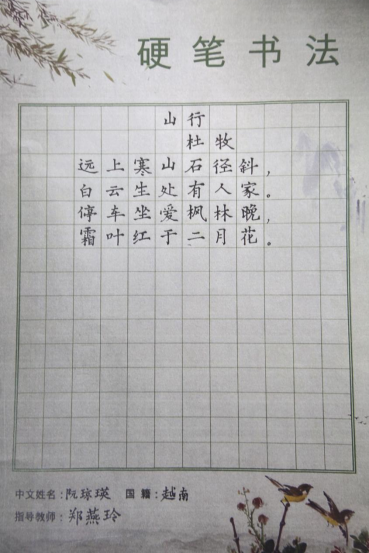 硬笔书法
山行
杜牧
远上寒山石径斜，
白云生处有人家。
停车坐爱枫林晚，
霜叶红于二月花。
中文姓名：阮琼瑛 国籍：越南
指导教师：郑燕玲